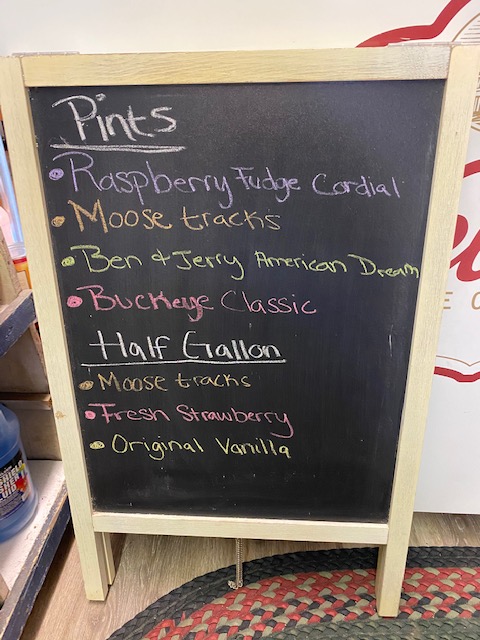 Pints
• Raspberry Fudge Cordial
• Moose tracks
• Ben & Jerry American Dream
• Buckeye Classic
Half Gallon
• Moose tracks
• Fresh Strawberry
• Original Vanilla